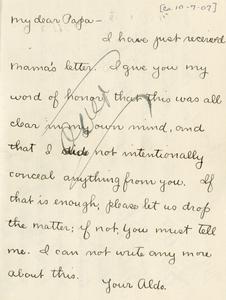 [ca. 10-7-07]
My dear Papa—
I have just received
Mama's letter. I give you my
word of honor that this was all
clear in my own mind, and
that I did not intentionally
conceal anything from you. If
that is enough, please let us drop
the matter; if not, you must tell
me. I can not write any more
about this.
Your Aldo.